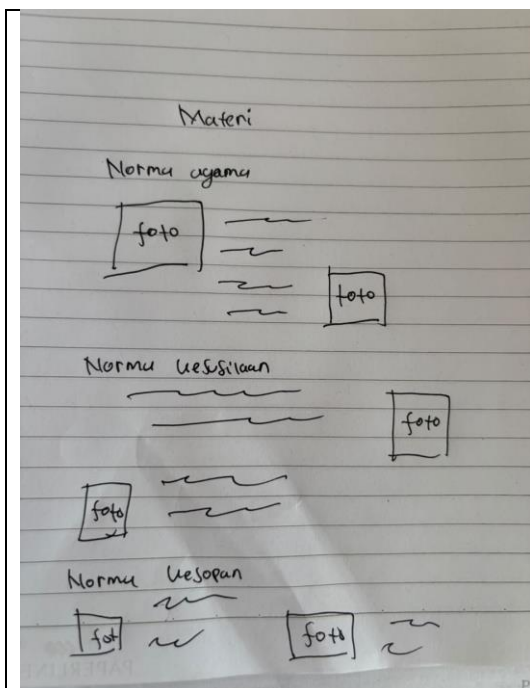 Materi
Norma agama
foto
foto
Norma kesusilaan
foto
foto
Norma kesopan
fot
foto
PAPERLINE